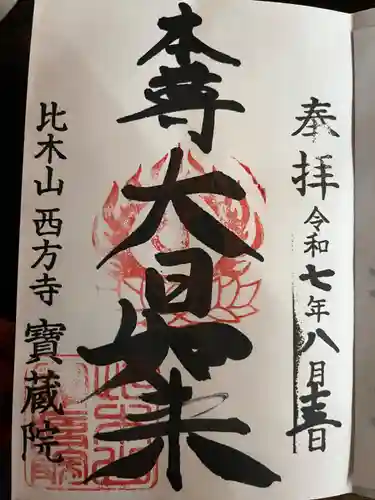 奉拝
令和七年八月十三日
本尊
大日如来
比木山西方寺
寶蔵院